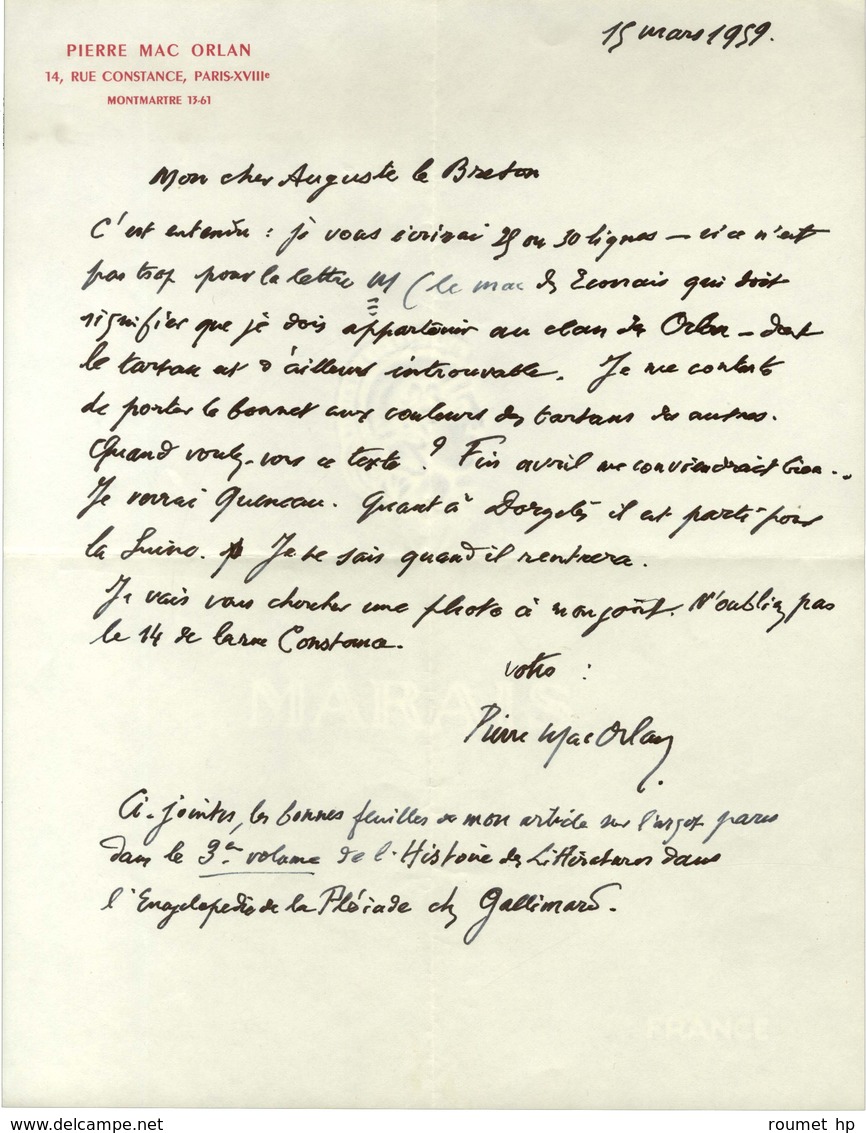 15 mars 1959.
PIERRE MAC ORLAN
14, RUE CONSTANCE, PARIS-XVIIIe
MONTMARTRE 13-61
Mon cher Auguste le Breton
C'est entendu : je vous écrirai 25 ou 30 lignes – si ce n'est
pas trop pour la lettre M (le mac des Ecossais qui doit
signifier que je dois appartenir au clan des Orlan – dont
le tartan est d'ailleurs introuvable. Je me contente
de porter le bonnet aux couleurs des tartans des autres.
Quand voulez-vous ce texte ? Fin avril me conviendrait bien..
Je verrai Queneau. Quant à Dorgelès il est parti pour
la Suisse. Je ne sais quand il rentrera.
Je vais vous chercher une photo à mon goût. N'oubliez pas
le 14 de la rue Constance.
votre :
Pierre Mac Orlan
Ci-jointes, les bonnes feuilles de mon article sur l'argot paru
dans le 3e volume de l'Histoire des Littératures dans
l'Encyclopédie de la Pléiade chez Gallimard.
MARAIS
FRANCE
roumet hp